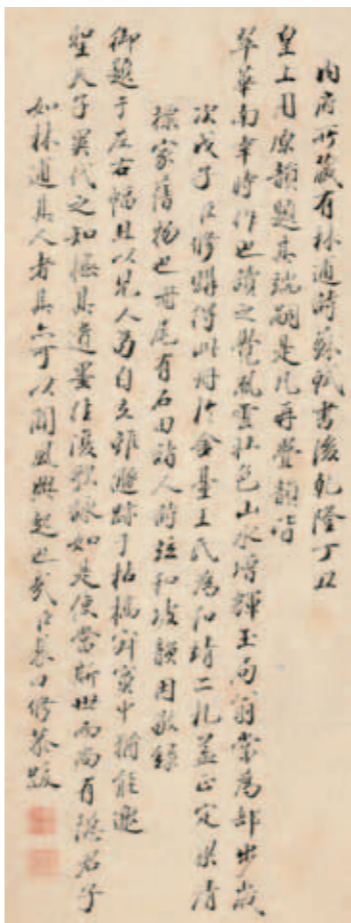 内府所藏有林逋時蘇軾書後乾隆丁丑
皇上用原韻題其端嗣是凡再疊韻皆
翠華南幸時作也讀之覺風雲壯色山水增輝玉局翁常為卻步歲
次戊子臣修購得此冊於金臺王氏為和靖二札蓋正定梁清
標家舊物也冊尾有石田詩人時綴和坡韻因敬錄
御題于左右幅且以見人苟自立雖遯跡于枯槁寂寞中猶能邀
聖天子異代之知拯其遺墨往復歌詠如是使當斯世而尚有隱君子
如林逋其人者其亦可以聞風興起也哉臣裘曰修恭跋